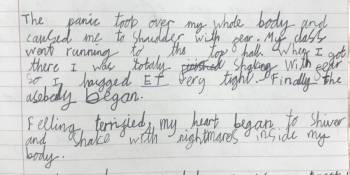 The panic took over my whole body and
caused me to shudder with gear. My class
went running to the top hall. When I got
there I was totaly shaking with gear
so I hugged ET very tight. Finally the
asebody began.
Felling terrigied, my heart began to shiver
and shake with nightmares inside my
body.